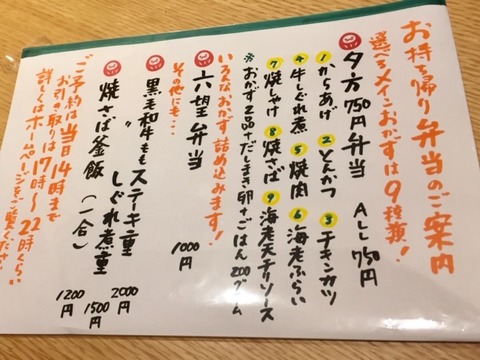 お持ち帰り弁当のご案内
選べるメインおかずは9種類!
夕方750円弁当 ALL 750円
①からあげ ②とんかつ ③チキンカツ
④牛しぐれ煮 ⑤焼肉 ⑥海老ふらい
⑦焼しゃけ ⑧焼さば ⑨海老天チリソース
※おかず2品+だしまき卵+ごはん200グラム
いろんなおかず詰め込みます!
六望弁当 1000円
その他にも…
黒毛和牛ももステーキ重 2000円
〃 しぐれ煮重 1500円
焼さば釜飯(一合) 1200円
ご予約は当日14時まで
お引き取りは17時〜22時ぐらい
詳しくはホームページをご覧ください!